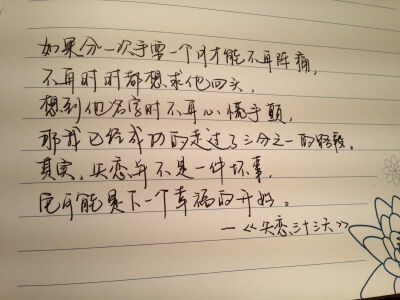 如果分一次手要一个月才能不再阵痛,
不再时时都想求他回头,
想到他名字时不再心慌手颤,
那我已经成功的走过了三分之一的路段。
其实,失恋并不是一件坏事,
它可能是下一个幸福的开始。
—《失恋三十三天》